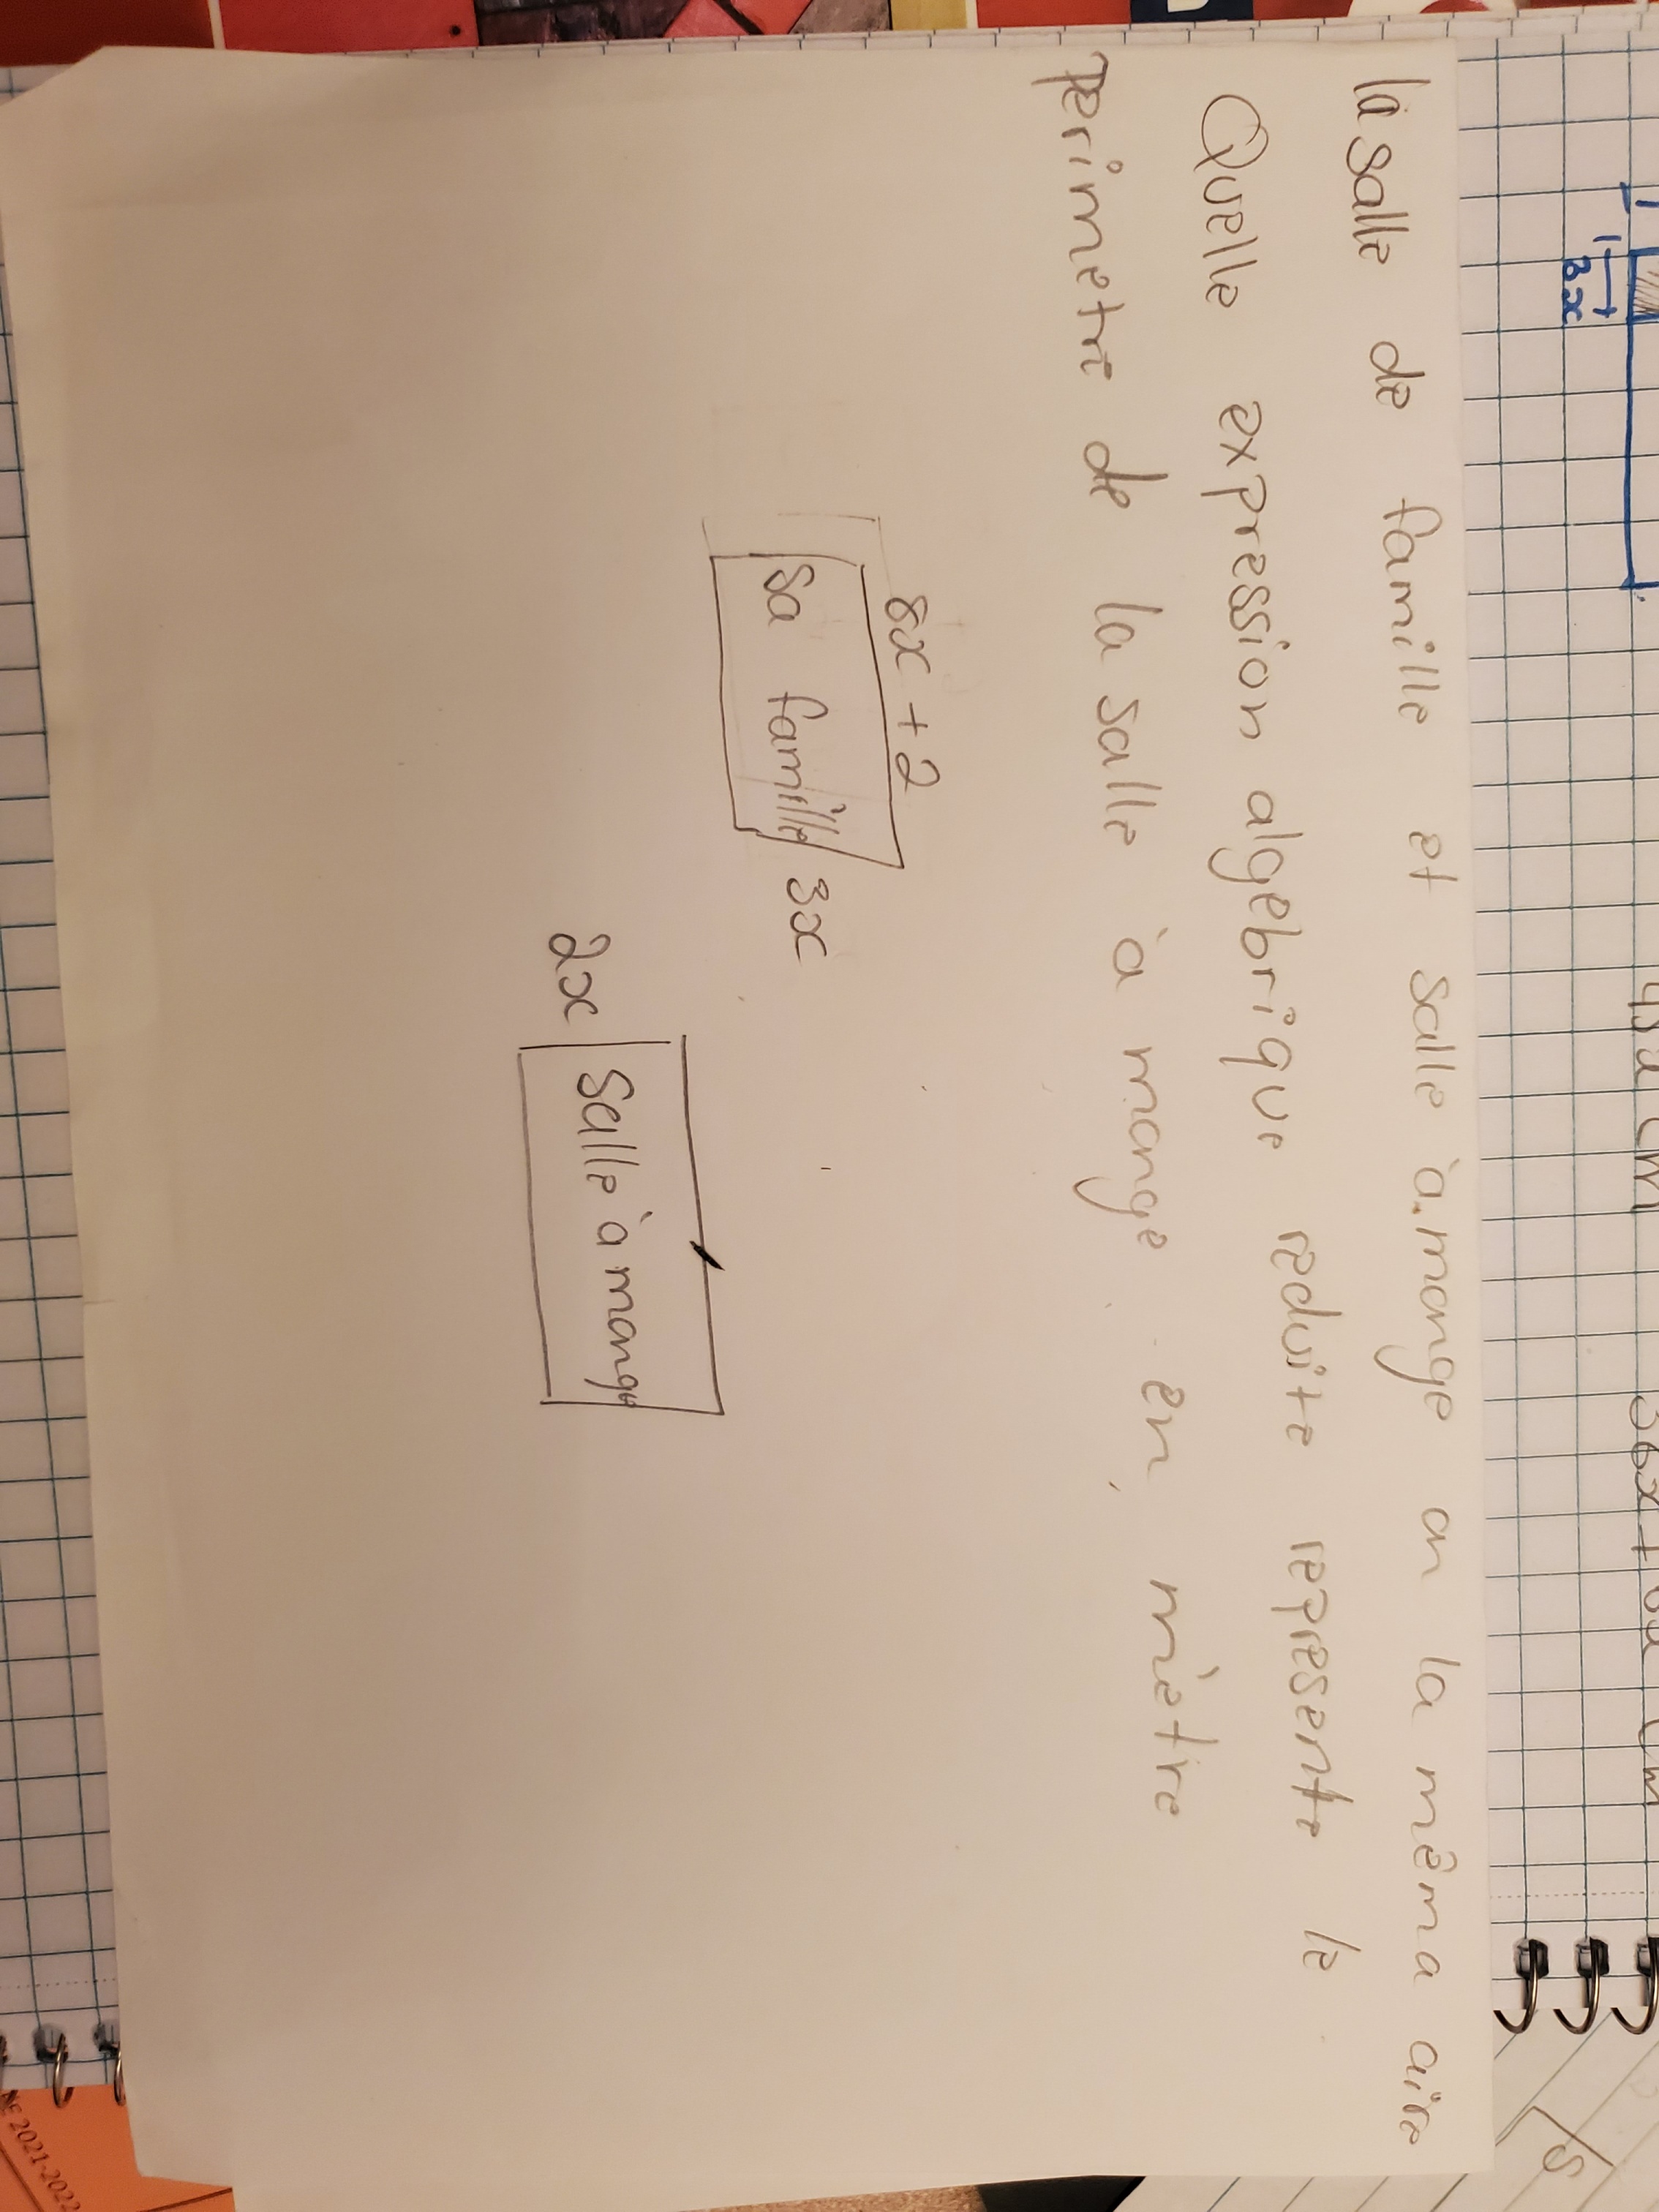 la salle de famille et salle à mange on la mêma aire
Quelle expression algebrique reduite represente le
perimetre de la salle à mange en mètre
8x + 2
Sa famille
3x
2x
Salle à mange
3x
2021-2022